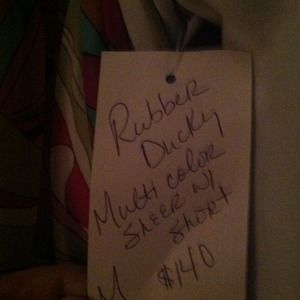 Rubber
Ducky
Multi color
Sheer w/
Short
M $140